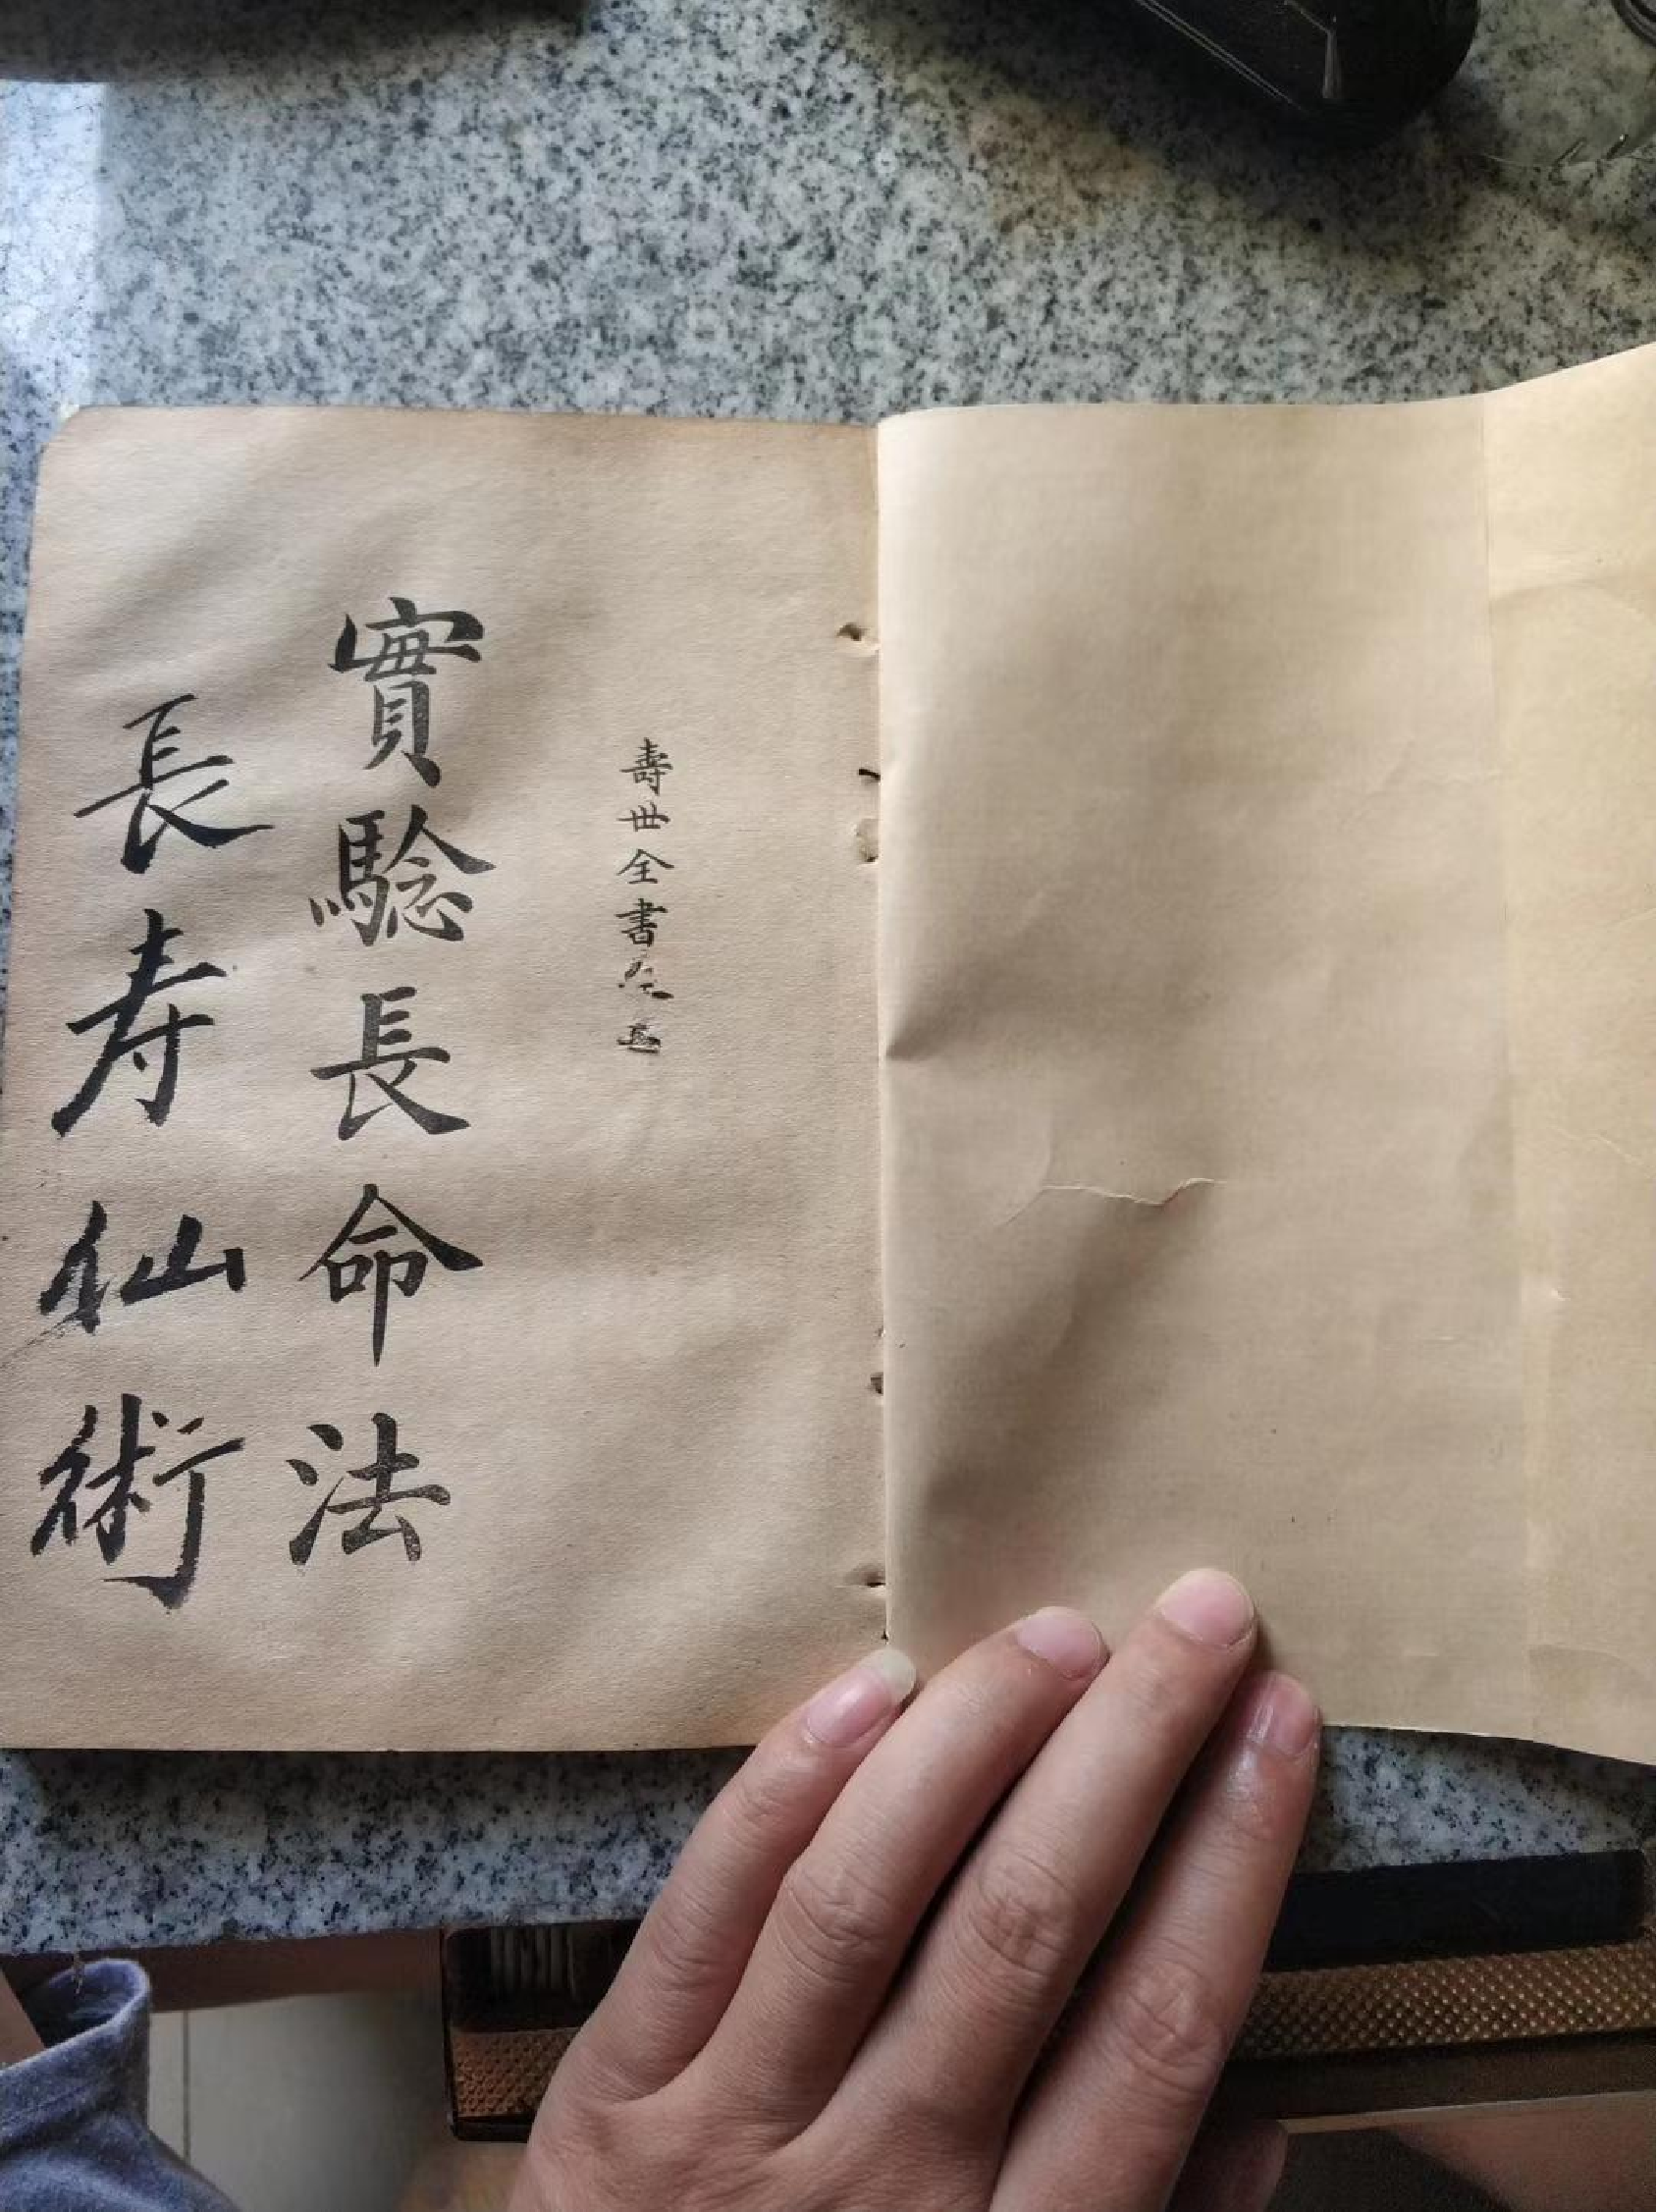 壽世全書
實騐長命法
長寿仙術